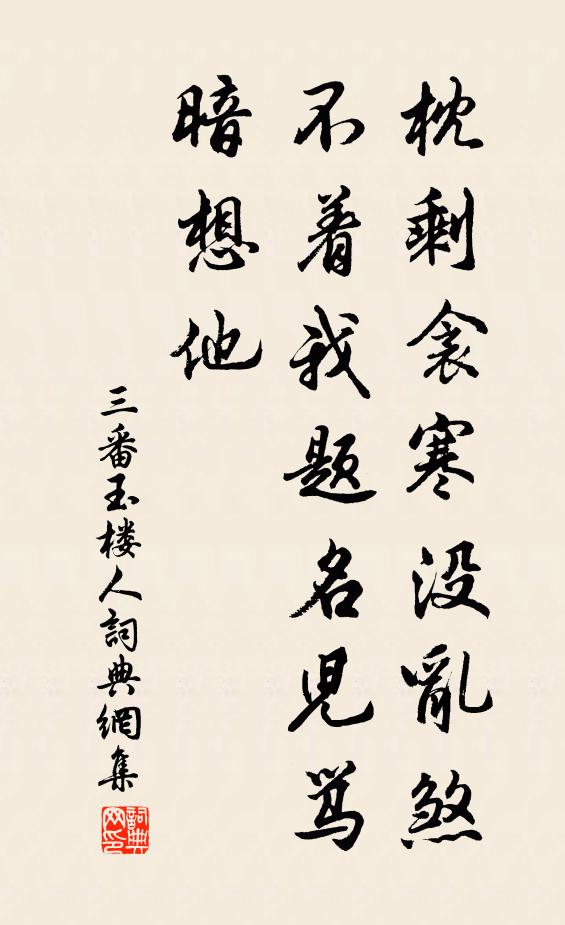 枕剩衾寒没亂煞
不着我题名兒骂
暗想他
三番玉楼人詞典網集
詞典网印